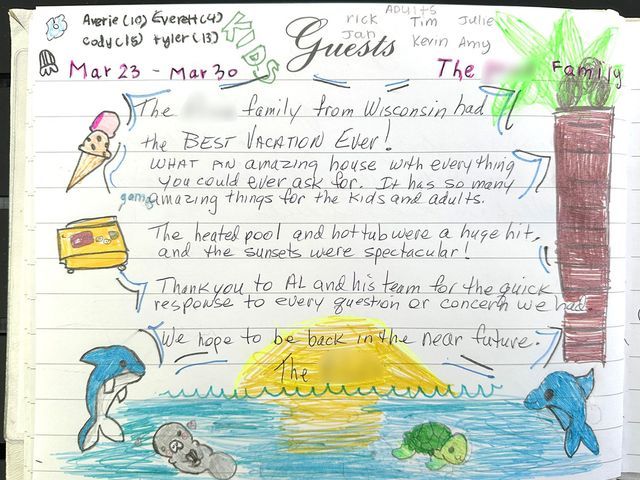 Averie (10) Everett (4)
Cody (15) Tyler (13)
KIDS
Guests
ADUltS
rick Tim Julie
Jan Kevin Amy
Mar 23 - Mar 30
The Family
The family from Wisconsin had
the BEST VACATION EVER!
WHAT AN amazing house with everything
you could ever ask for. It has so many
amazing things for the kids and adults.
The heated pool and hot tub were a huge hit,
and the sunsets were spectacular!
Thank you to AL and his team for the quick
response to every question or concern we had.
We hope to be back in the near future.
The